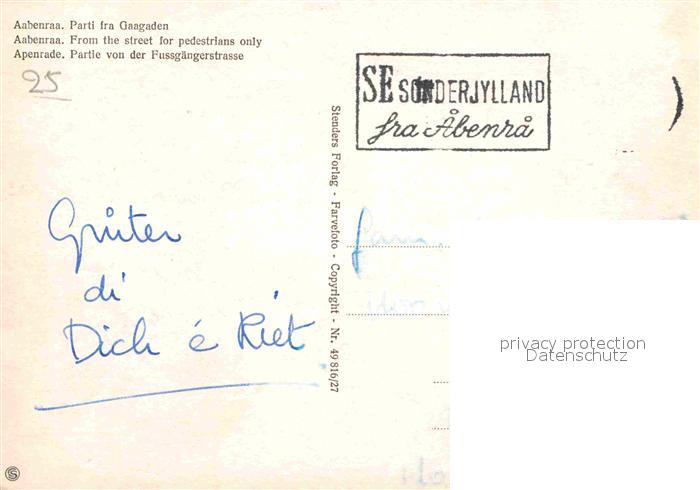 Aabenraa. Parti fra Gaagaden
Aabenraa. From the street for pedestrians only
Apenrade. Partie von der Fussgängerstrasse
25
SE SØNDERJYLLAND
fra Åbenrå
Stenders Forlag - Farvefoto - Copyright - Nr. 49816/27
Gruter
di
Dich é Riet
Fam.
privacy protection
Datenschutz